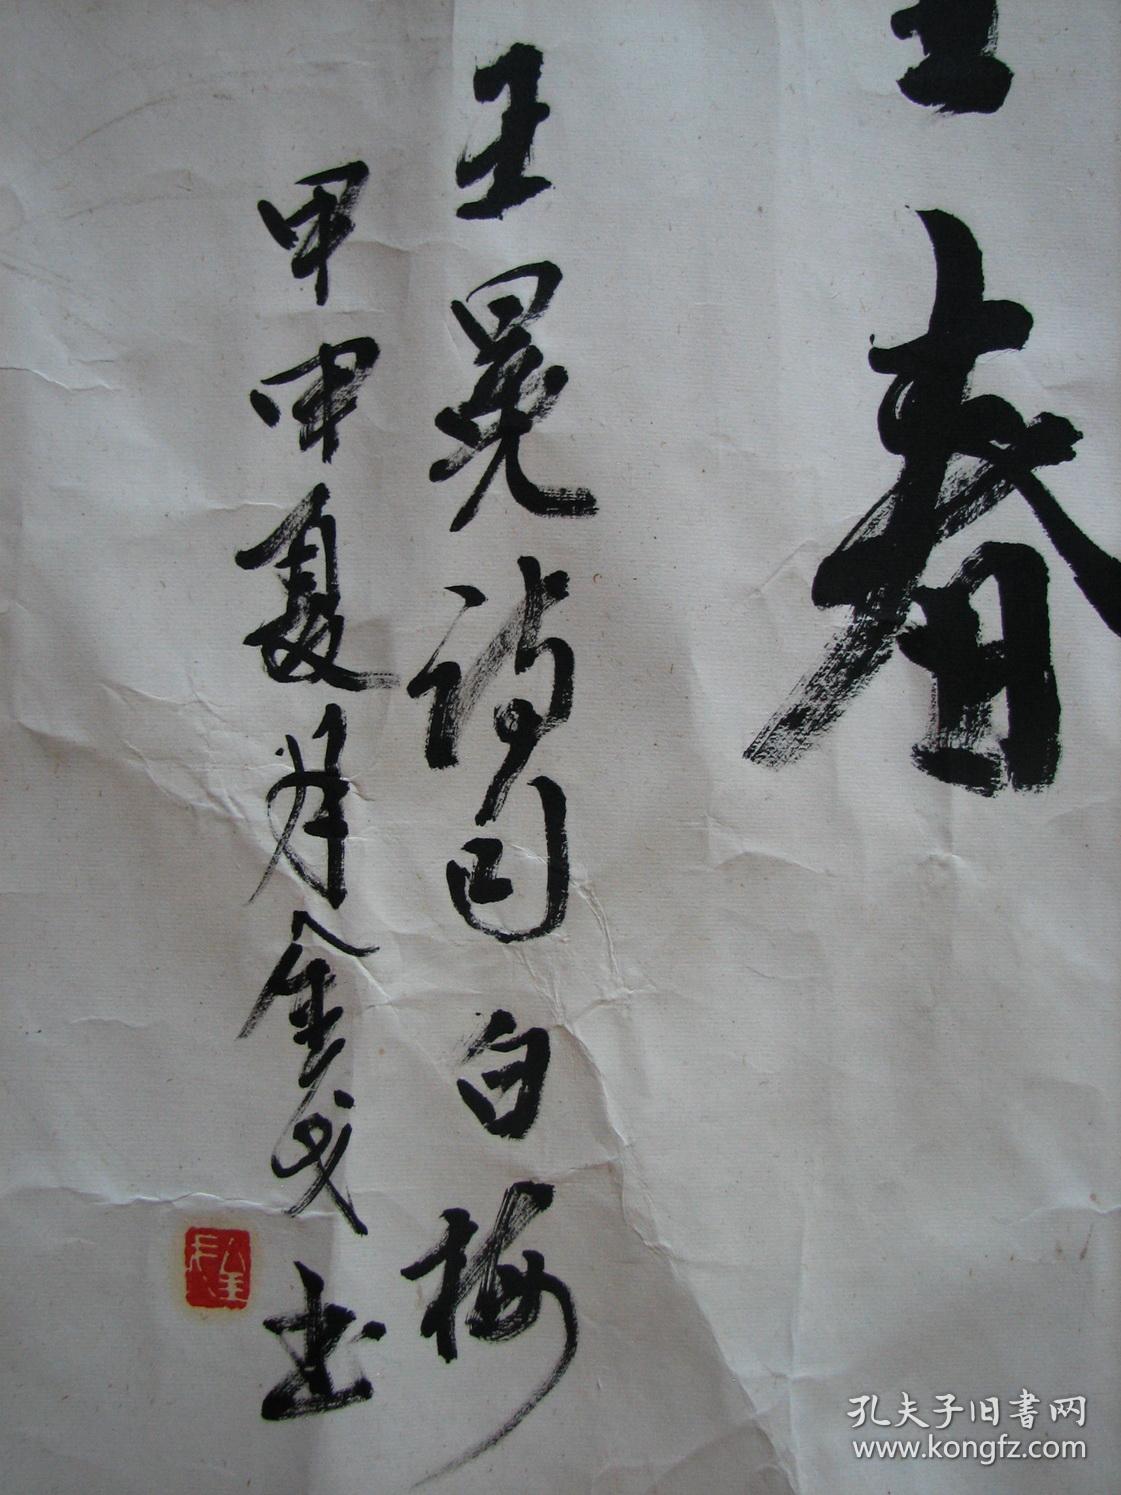 春
王冕詩句白梅
甲申夏月金戈书
孔夫子旧書网
www.kongfz.com